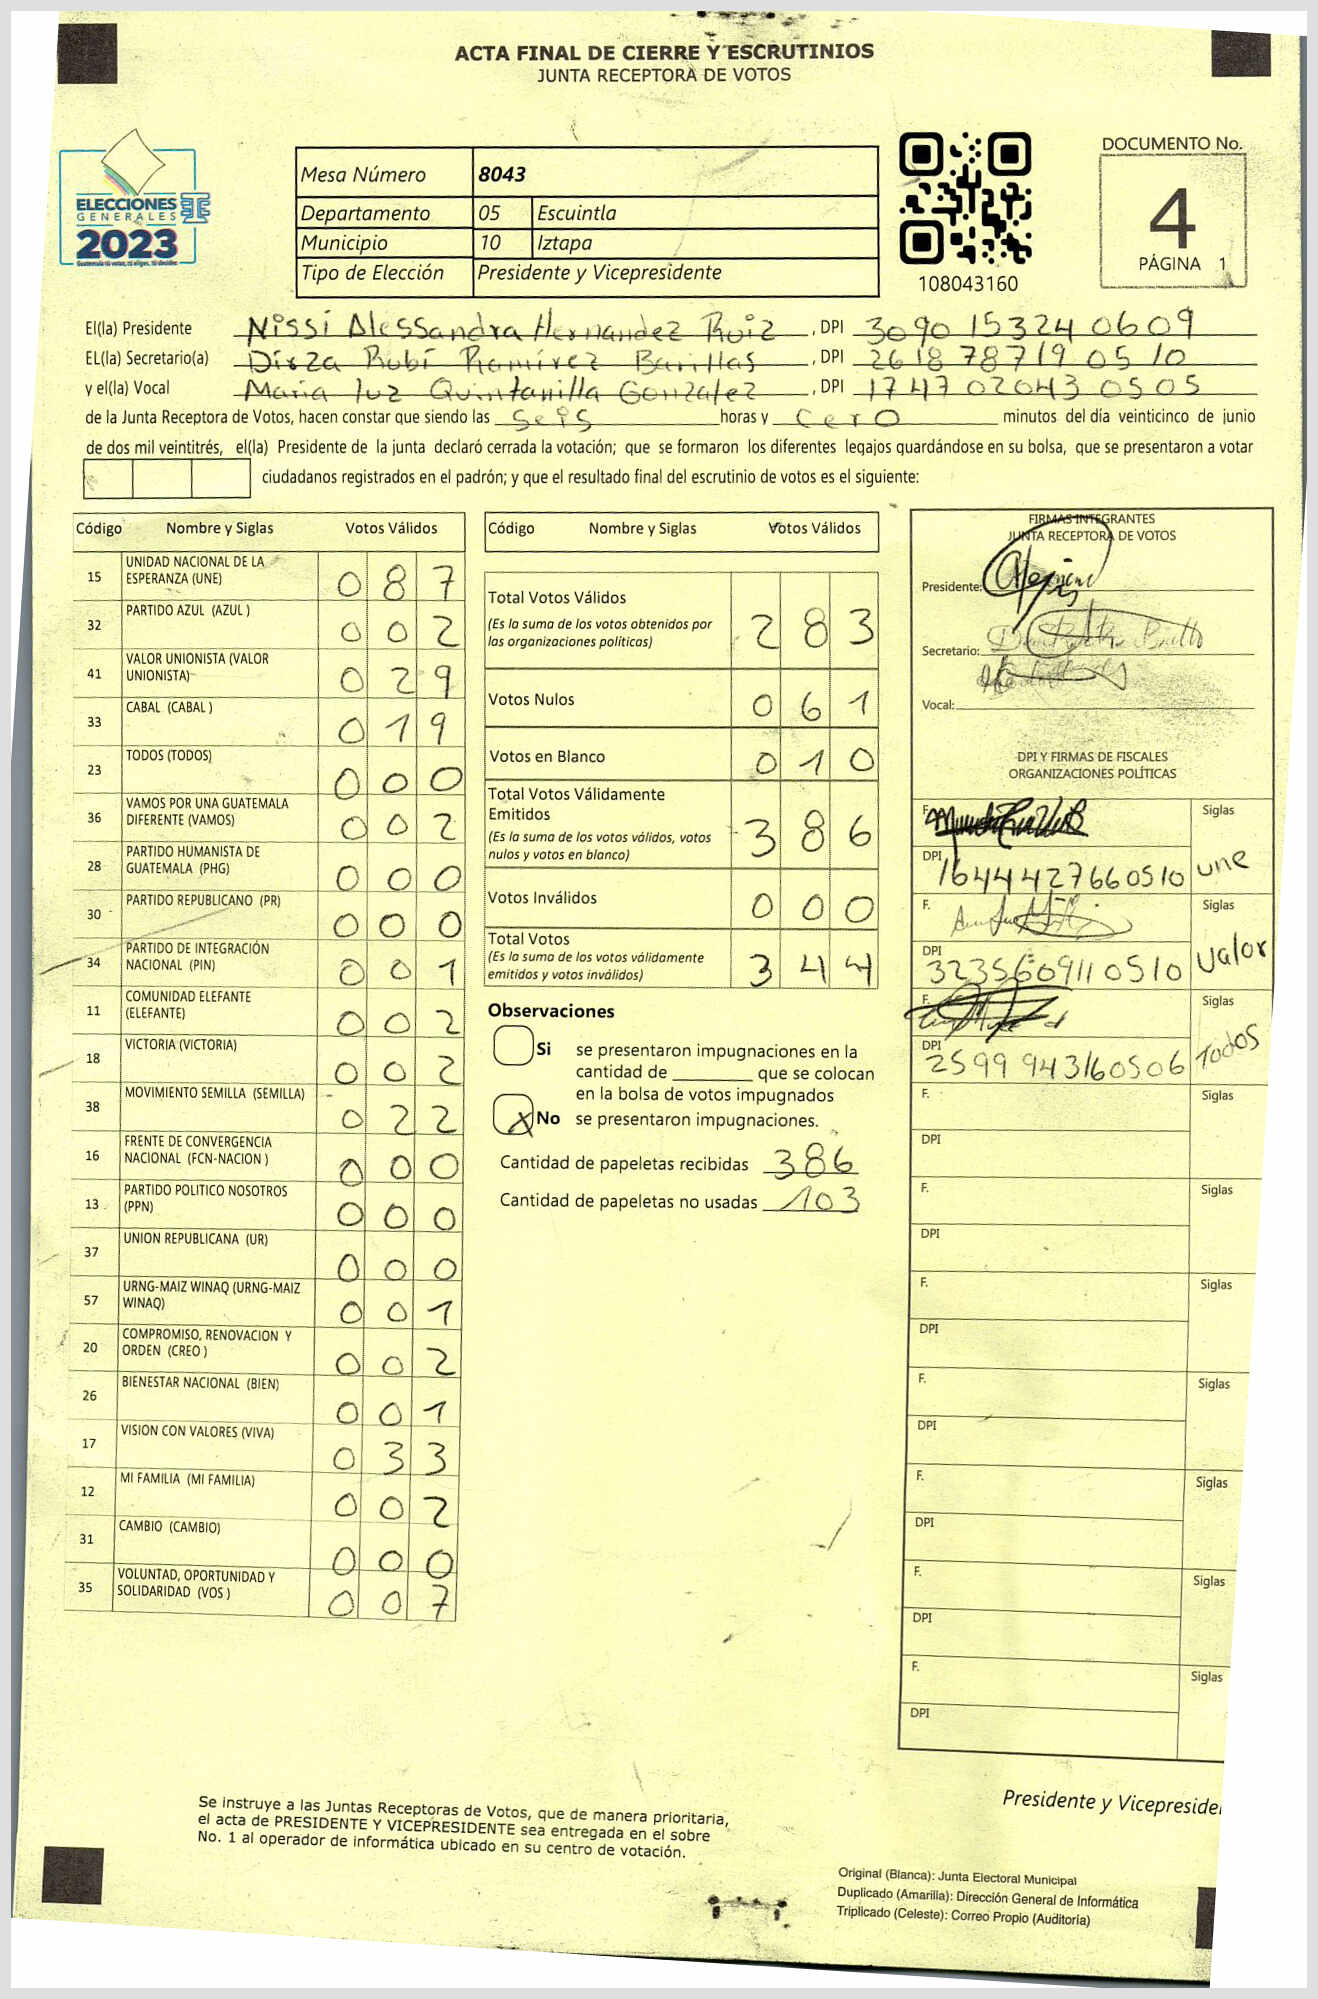 ACTA FINAL DE CIERRE Y ESCRUTINIOS
JUNTA RECEPTORA DE VOTOS
ELECCIONES
GENERALES
2023
Mesa Número 8043
Departamento 05 Escuintla
Municipio 10 Iztapa
Tipo de Elección Presidente y Vicepresidente
108043160
DOCUMENTO No.
4
PÁGINA 1
El(la) Presidente Nissi Alessandra Hernandez Ruiz, DPI 3090 15324 0609
EL(la) Secretario(a) Dirza Rubí Ramírez Barillas, DPI 2618 78719 0510
y el(la) Vocal Maria luz Quintanilla Gonzalez, DPI 1747 02043 0505
de la Junta Receptora de Votos, hacen constar que siendo las seis horas y cero minutos del día veinticinco de junio
de dos mil veintitrés, el(la) Presidente de la junta declaró cerrada la votación; que se formaron los diferentes legajos guardándose en su bolsa, que se presentaron a votar
ciudadanos registrados en el padrón; y que el resultado final del escrutinio de votos es el siguiente:
Código Nombre y Siglas Votos Válidos
15 UNIDAD NACIONAL DE LA ESPERANZA (UNE) 0 8 7
32 PARTIDO AZUL (AZUL ) 0 0 2
41 VALOR UNIONISTA (VALOR UNIONISTA) 0 2 9
33 CABAL (CABAL ) 0 1 9
23 TODOS (TODOS) 0 0 0
36 VAMOS POR UNA GUATEMALA DIFERENTE (VAMOS) 0 0 2
28 PARTIDO HUMANISTA DE GUATEMALA (PHG) 0 0 0
30 PARTIDO REPUBLICANO (PR) 0 0 0
34 PARTIDO DE INTEGRACIÓN NACIONAL (PIN) 0 0 1
11 COMUNIDAD ELEFANTE (ELEFANTE) 0 0 2
18 VICTORIA (VICTORIA) 0 0 2
38 MOVIMIENTO SEMILLA (SEMILLA) 0 2 2
16 FRENTE DE CONVERGENCIA NACIONAL (FCN-NACION ) 0 0 0
13 PARTIDO POLITICO NOSOTROS (PPN) 0 0 0
37 UNION REPUBLICANA (UR) 0 0 0
57 URNG-MAIZ WINAQ (URNG-MAIZ WINAQ) 0 0 1
20 COMPROMISO, RENOVACION Y ORDEN (CREO ) 0 0 2
26 BIENESTAR NACIONAL (BIEN) 0 0 1
17 VISION CON VALORES (VIVA) 0 3 3
12 MI FAMILIA (MI FAMILIA) 0 0 2
31 CAMBIO (CAMBIO) 0 0 0
35 VOLUNTAD, OPORTUNIDAD Y SOLIDARIDAD (VOS ) 0 0 7
Código Nombre y Siglas Votos Válidos
Total Votos Válidos 2 8 3
(Es la suma de los votos obtenidos por
las organizaciones políticas)
Votos Nulos 0 6 1
Votos en Blanco 0 1 0
Total Votos Válidamente
Emitidos 3 8 6
(Es la suma de los votos válidos, votos
nulos y votos en blanco)
Votos Inválidos 0 0 0
Total Votos 3 4 4
(Es la suma de los votos válidamente
emitidos y votos inválidos)
Observaciones
Si se presentaron impugnaciones en la
cantidad de ________ que se colocan
en la bolsa de votos impugnados
X No se presentaron impugnaciones.
Cantidad de papeletas recibidas 386
Cantidad de papeletas no usadas 103
FIRMAS INTEGRANTES
JUNTA RECEPTORA DE VOTOS
Presidente:
Secretario:
Vocal:
DPI Y FIRMAS DE FISCALES
ORGANIZACIONES POLÍTICAS
F. Siglas
DPI 1644442766 0510 une
F. Siglas
DPI 323560911 0510 Valor
F. Siglas
DPI 2599 94316 0506 Todos
F. Siglas
DPI
F. Siglas
DPI
F. Siglas
DPI
F. Siglas
DPI
F. Siglas
DPI
F. Siglas
DPI
F. Siglas
DPI
Presidente y Vicepreside
Se instruye a las Juntas Receptoras de Votos, que de manera prioritaria,
el acta de PRESIDENTE Y VICEPRESIDENTE sea entregada en el sobre
No. 1 al operador de informática ubicado en su centro de votación.
Original (Blanca): Junta Electoral Municipal
Duplicado (Amarilla): Dirección General de Informática
Triplicado (Celeste): Correo Propio (Auditoría)